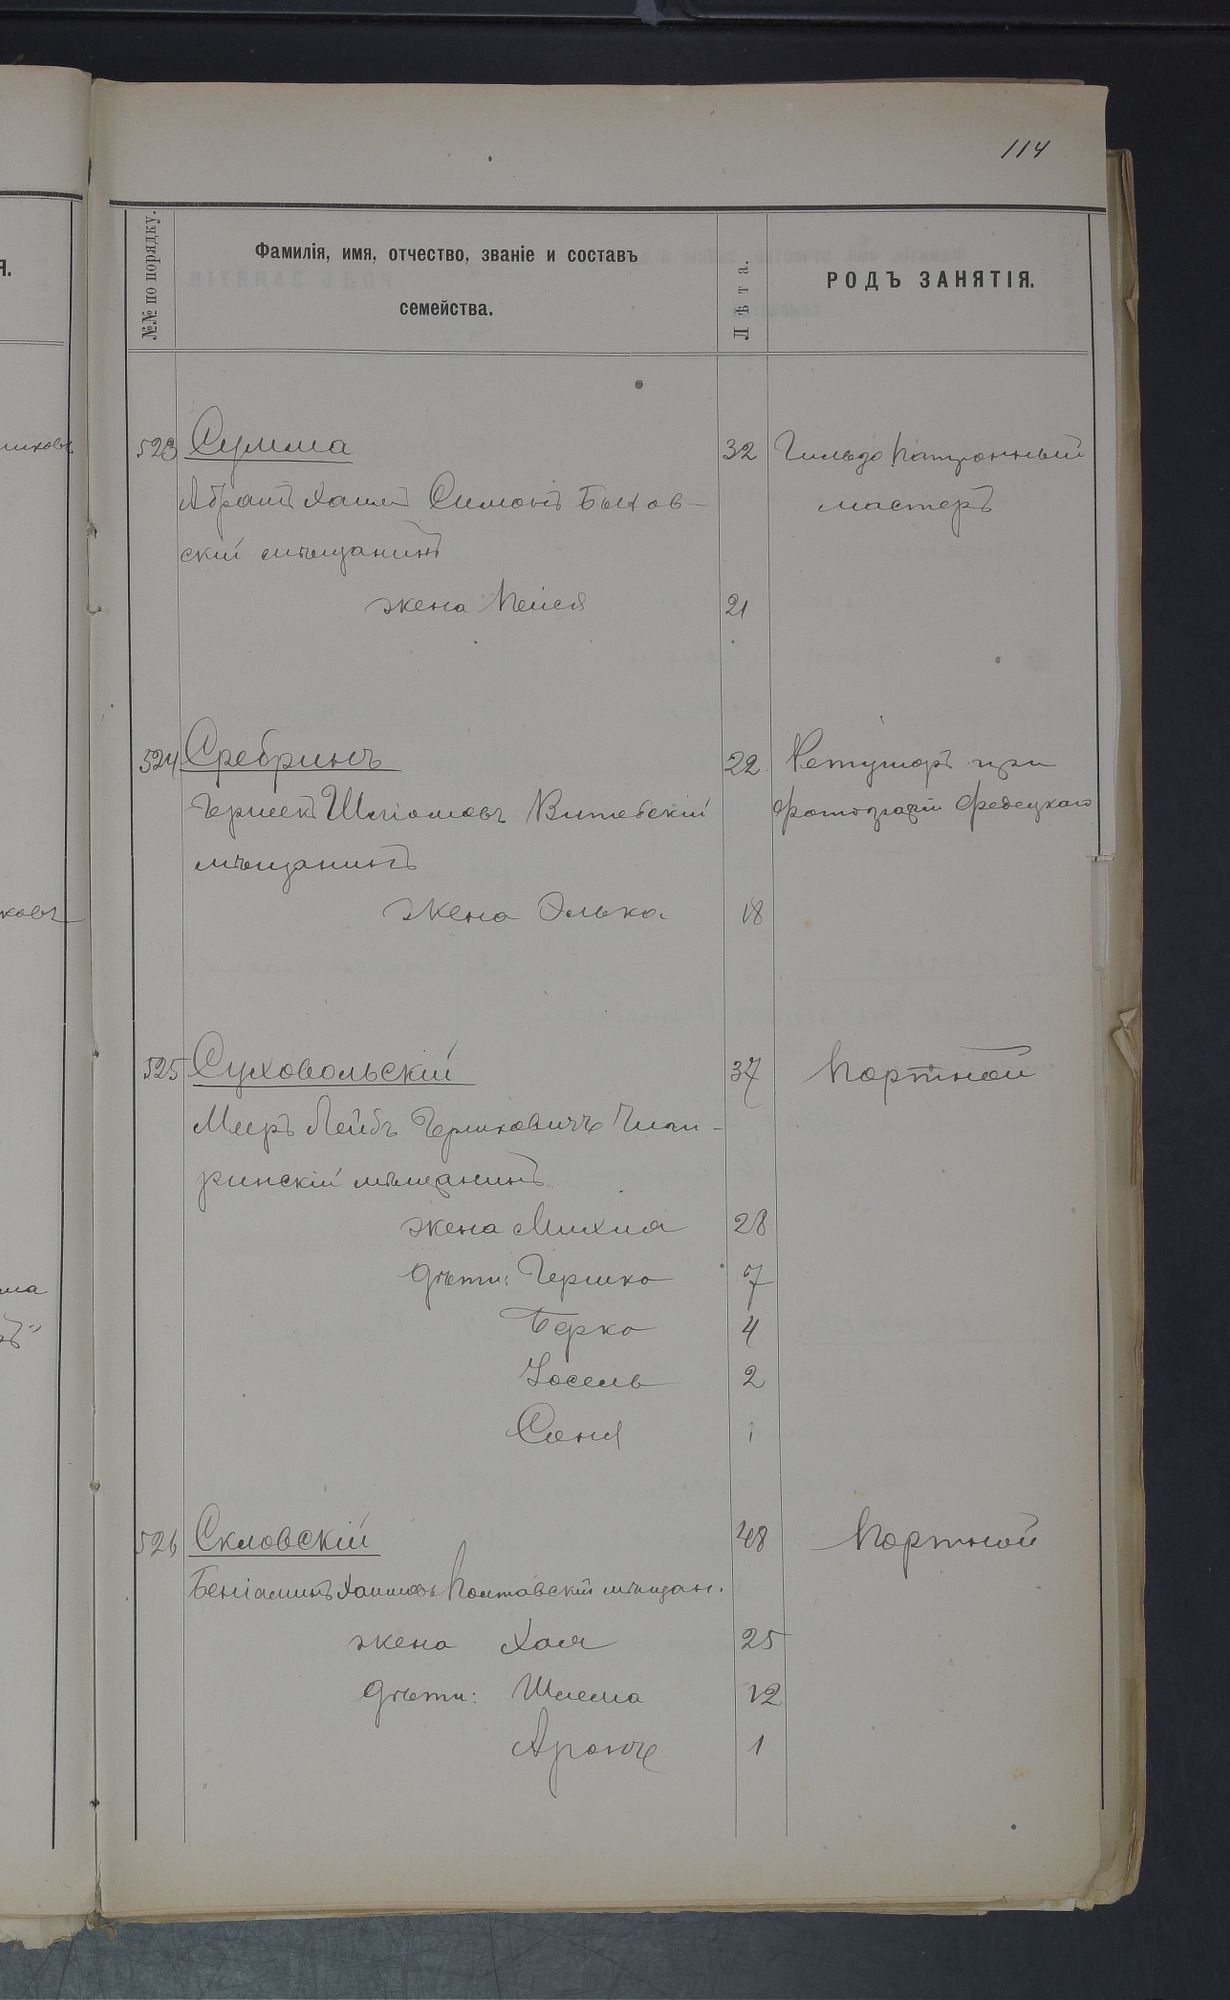 114
№№ по порядку.
Фамилія, имя, отчество, званіе и составъ
семейства.
Лѣта.
РОДЪ ЗАНЯТІЯ.
523 Сумма 32 Гильзо патронный
Абрамъ Хаимъ Симонъ Быхов-
мастеръ
скій мѣщанинъ
жена Пейся 21
524 Сребринъ 22 Ретушоръ при
Гершенъ Шліомовъ Витебскій
фотографіи Федецкаго
мѣщанинъ
жена Элька 18
525 Суховольскій 37 Портной
Мееръ Лейбъ Гершковичъ Чиги-
ринскій мѣщанинъ
жена Михля 28
дѣти: Гершко 7
Берко 4
Іосель 2
Соня 1
526 Скловскій 48 Портной
Беніаминъ Хаимовъ Полтавскій мѣщан.
жена Хая 25
дѣти: Шлема 12
Аронъ 1